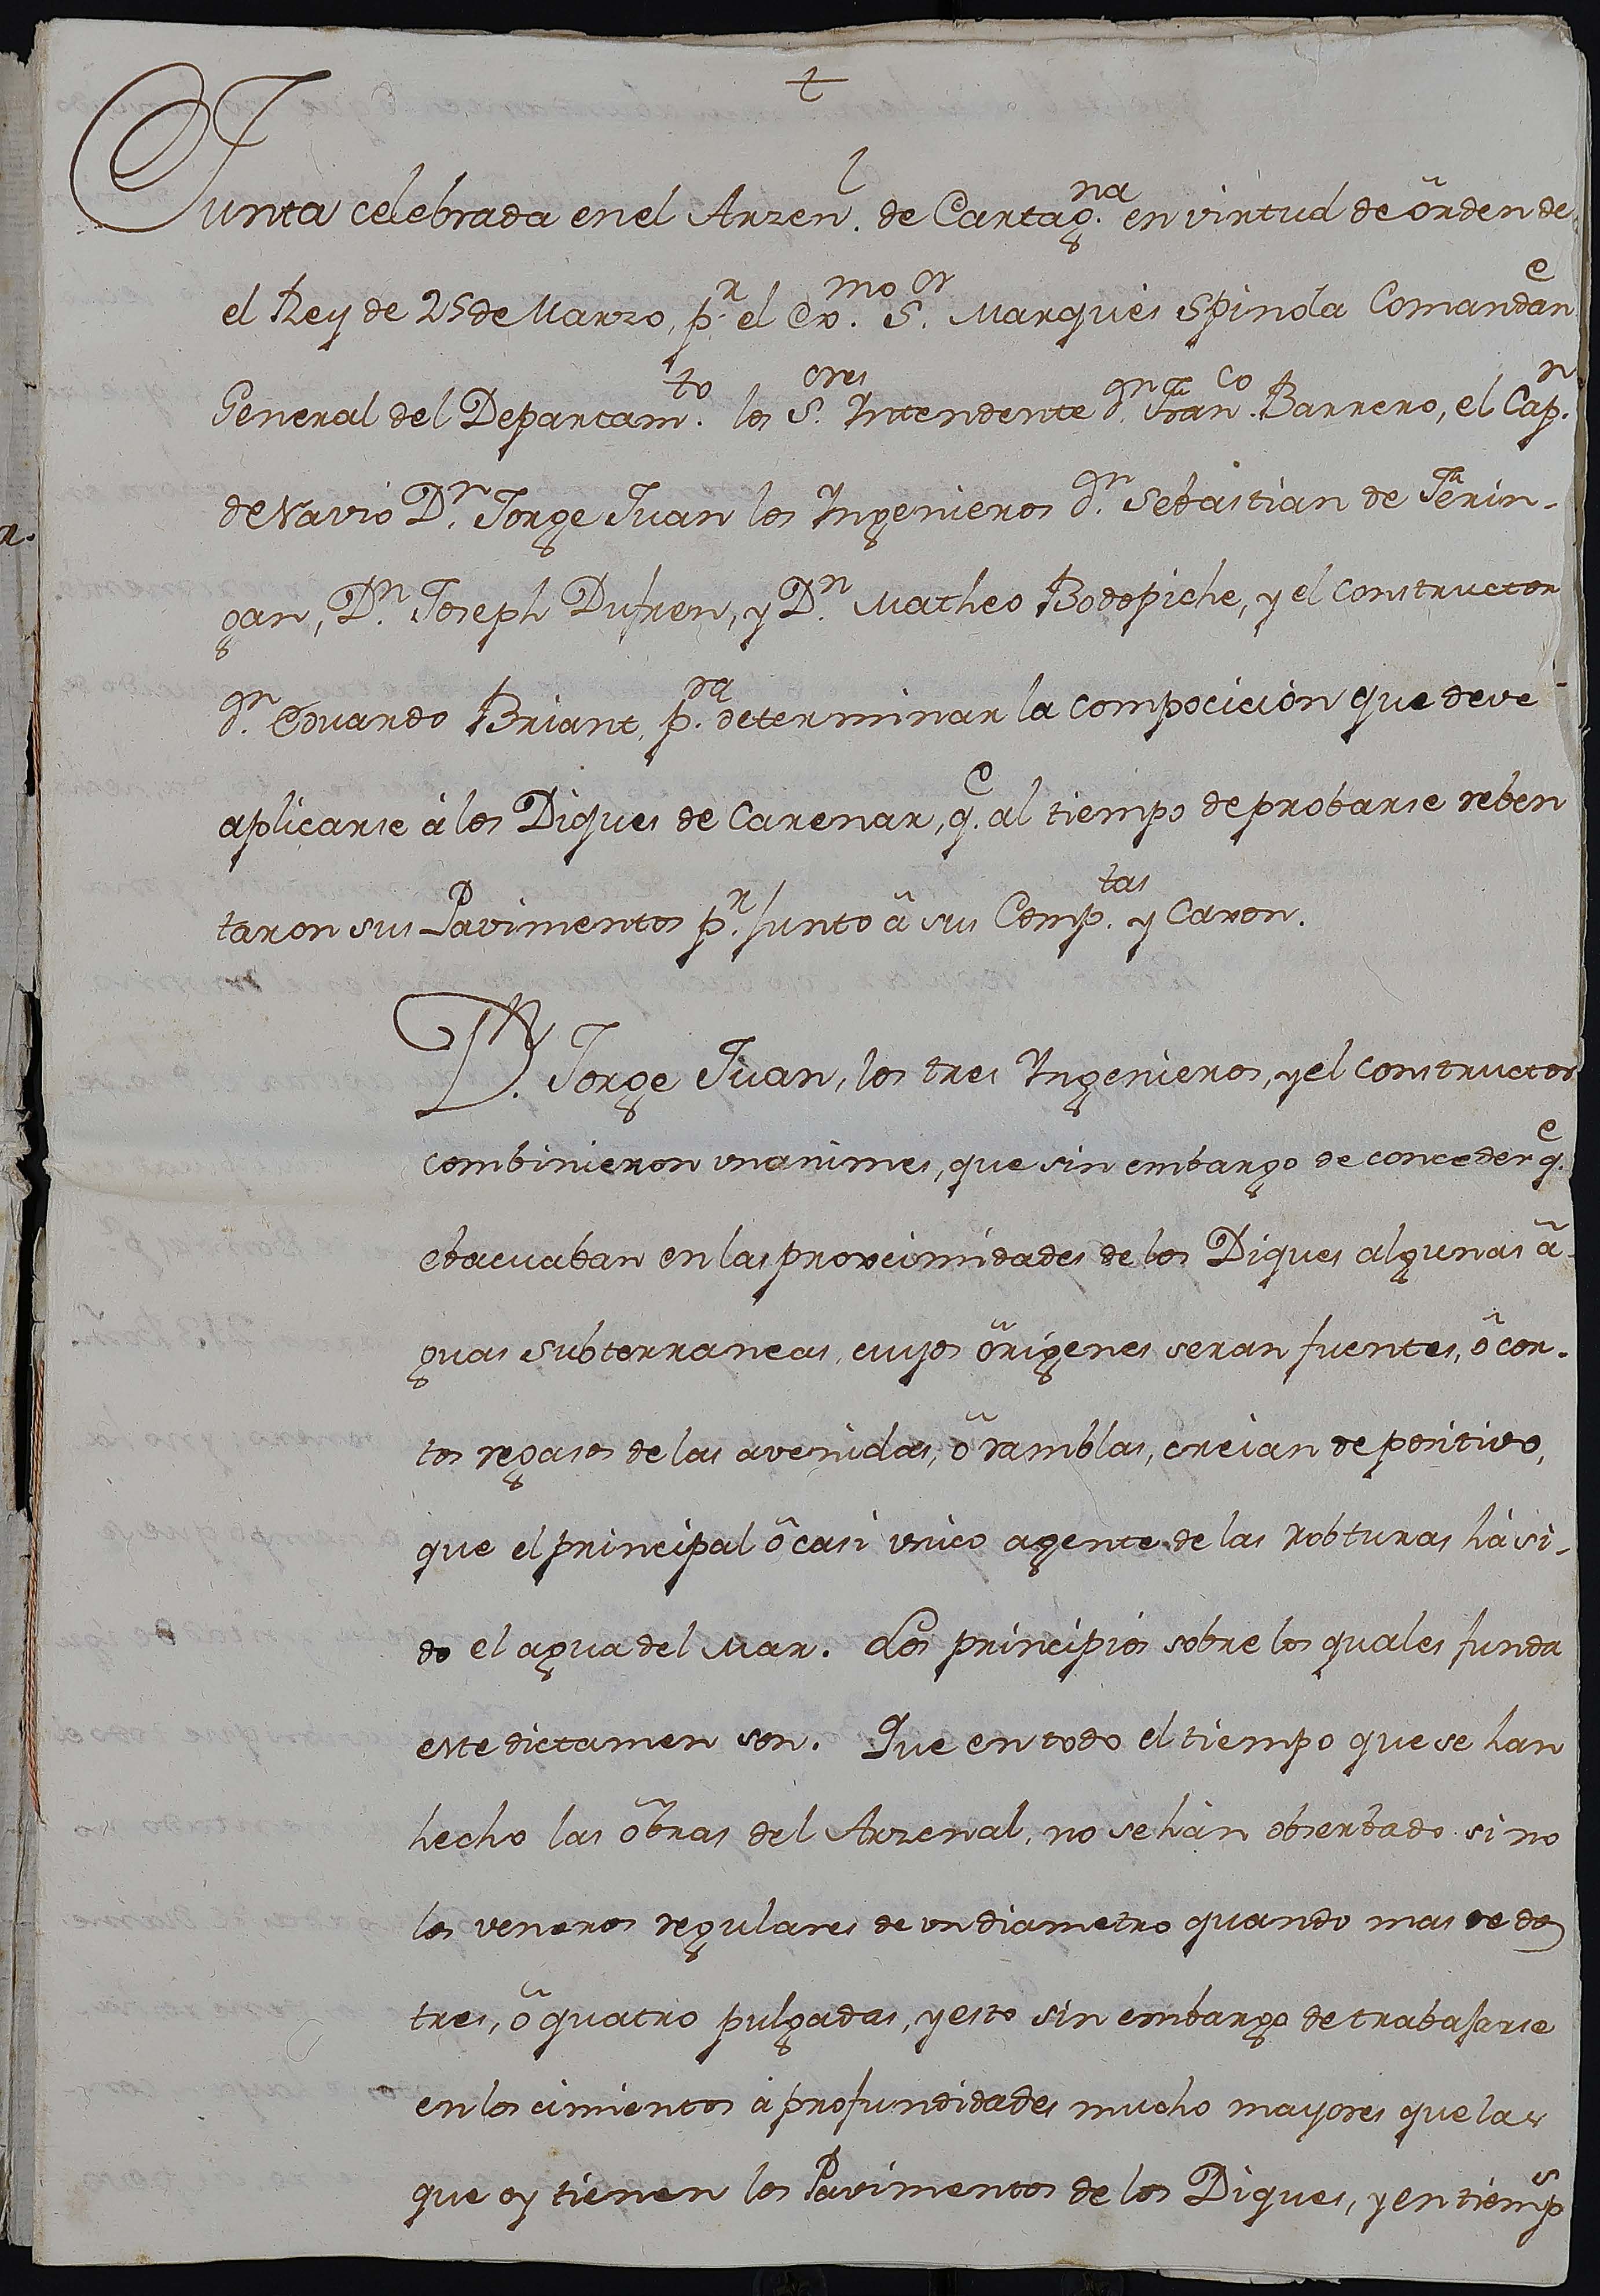 †
Junta celebrada en el Arzen.l de Cartag.na en virtud de õrden de
el Rey de 25 de Marzo, p.r el Ex.mo S.or Marquès Spinola Comandan.e
General del Departam.to los S.ores Yntendente d.n Fran.co Barrero, el Cap.n
de Navio D.n Jorge Juan los Yngenieros d.n Sebastian de Ferin-
gan, D.n Joseph Dufren, y D.n Matheo Bodopiche, y el Constructor
d.n Eduardo Briant, p.ra determinar la composición que deve
aplicarse à los Diques de Carenar, q.e al tiempo de probarse reben
taron sus Pavimentos p.r junto â sus Comp.tas y Caxon.
D.n Jorge Juan, los tres Yngenieros, y el Constructor
combinieron unanimes, que sin embargo de conceder q.e
ebacuaban en las proxcimidades de los Diques algunas ã-
guas subterraneas, cuyos õrigenes seran fuentes, ô cor-
tos regasos de las avenidas, õ ramblas, creian de positivo,
que el principal ô casi unico agente de las robturas hà si-
do el agua del Mar. Los principios sobre los quales funda
este dictamen son. Que en todo el tiempo que se han
hecho las õbras del Arzenal, no se hàn obserbado si no
los veneros regulares de un diametro quando mas de dos
tres, õ quatro pulgadas, y esto sin embargo de trabajarse
en los cimientos à profundidades mucho mayores que las
que oy tienen los Pavimentos de los Diques, y en tiemp.s